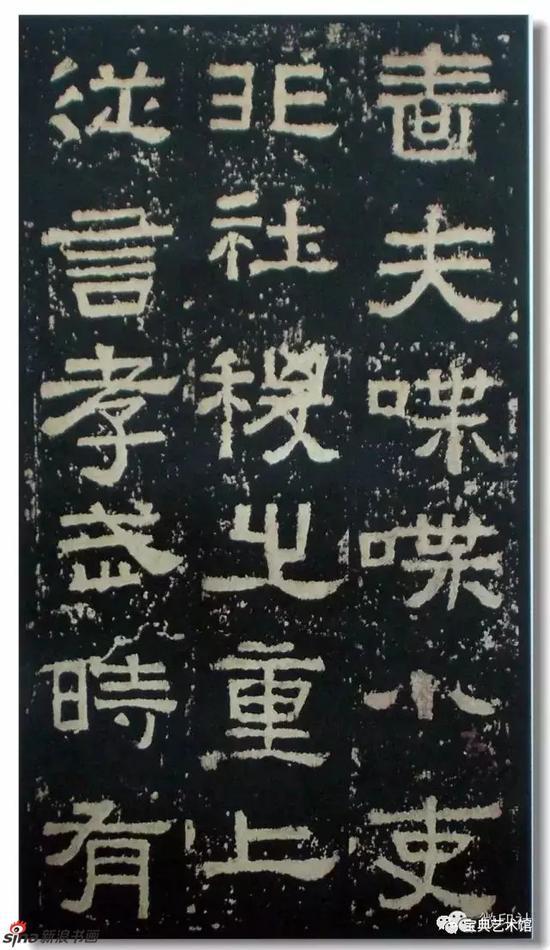 嗇夫喋喋小吏
非社稷之重上
從言孝武時有
sina新浪书画
宝典艺术馆